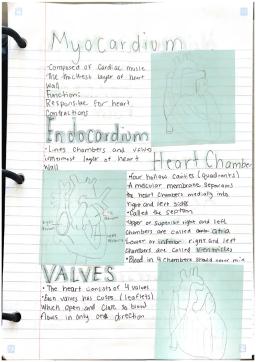 Myocardium
• Composed of cardiac muscle
• The thickest layer of heart
wall
Functions:
Responsible for heart
contractions
Endocardium
• Lines chambers and valves
innermost layer of heart
wall
Heart Chamber
Four hollow cavities (quadrants)
A muscular membrane separates
the heart chambers medially into
right and left sides
• Called the septum
Upper or superior right and left
chambers are called atria
Lower or inferior right and left
chambers are called ventricles
• Blood in 4 chambers should never mix
VALVES
• The heart consists of 4 valves
• Each valves has cusps (leaflets)
which open and close so blood
flows in only one direction